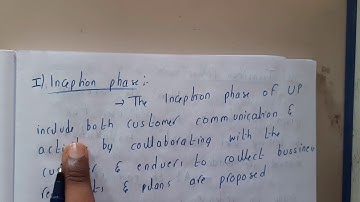 I) Inception phase :-
→ The Inception phase of UP
include both customer communication &
by collaborating with the
& enduers to collect bussiness
& plans are proposed